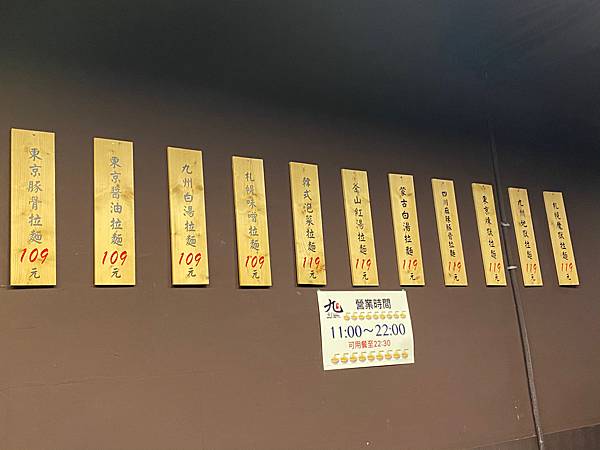 東京豚骨拉麵
109元
東京醬油拉麵
109元
九州白湯拉麵
109元
札幌味噌拉麵
109元
韓式泡菜拉麵
119元
釜山紅湯拉麵
119元
蒙古白湯拉麵
119元
四川麻辣豚骨拉麵
119元
東京煉獄拉麵
119元
九州地獄拉麵
119元
札幌魔獄拉麵
119元
九
營業時間
11:00～22:00
可用餐至22:30